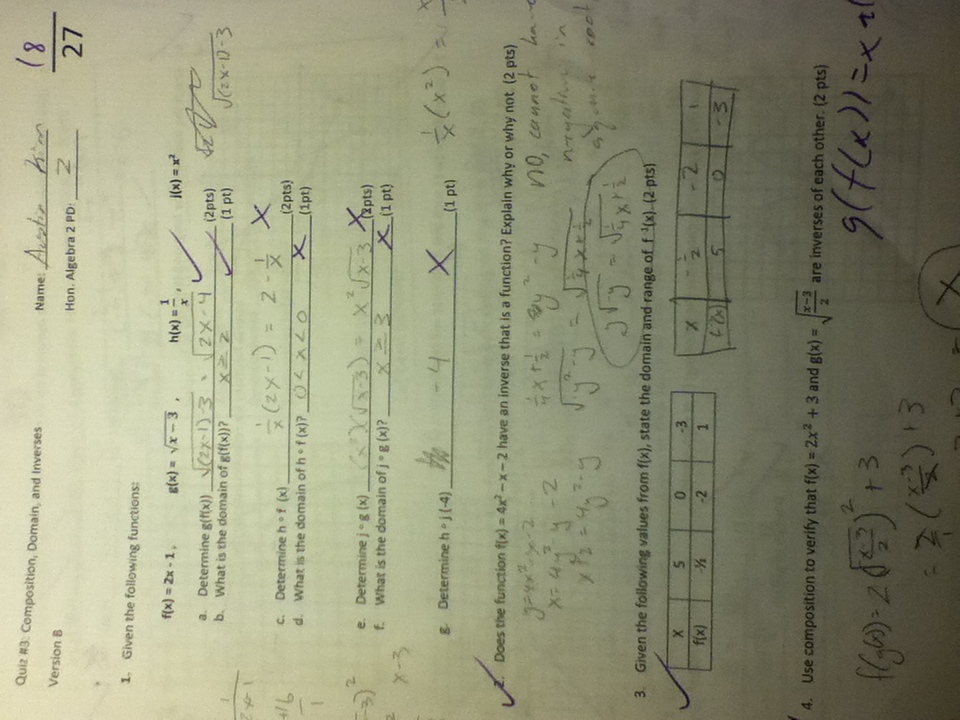 Quiz #3: Composition, Domain, and Inverses
Version B
Name: Austin Kim
Hon. Algebra 2 PD: 2
18
27
1. Given the following functions:
f(x) = 2x - 1, g(x) = √(x − 3), h(x) = 1/x, j(x) = x²
a. Determine g(f(x)) √((2x-1)-3) = √(2x-4) (2pts)
√((2x-1)-3)
b. What is the domain of g(f(x))? x ≥ 2 (1 pt)
1/x (2x-1) = 2 - 1/x X
c. Determine h∘f (x) (2pts)
d. What is the domain of h∘f (x)? 0 < x < 0 X (1pt)
e. Determine j∘g (x) (x²)(√(x-3)) = x²√(x-3) X (2pts)
f. What is the domain of j∘g (x)? x ≥ 3 X (1 pt)
x-3
g. Determine h∘j (-4) -4 X (1 pt)
1/x (x²) =
2. Does the function f(x) = 4x² – x – 2 have an inverse that is a function? Explain why or why not. (2 pts)
y=4x²-x-2
x=4y²-y-2
x+2=4y²-y
no, cannot have
negative in
square root
y√-y = √(1/4x+1/2)
3. Given the following values from f(x), state the domain and range of f⁻¹(x). (2 pts)
X 5 0 -3
f(x) -½ -2 1
X -1/2 -2 1
5 0 -3
4. Use composition to verify that f(x) = 2x² + 3 and g(x) = √((x−3)/2) are inverses of each other. (2 pts)
g(f(x))=x
f(g(x))=2(√((x-3)/2))²+3
= 2/1 ((x-3)/2)+3
x